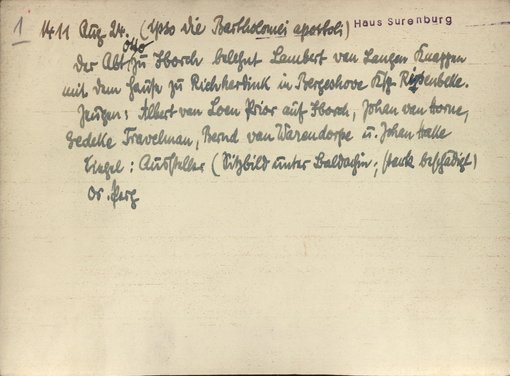 1 1411 Aug 24. (ipso die Bartholomei apostoli) Haus Surenburg
Der Abt Otto zu Iborch belehnt Lambert van Langen Knappen
mit dem Hause zu Richherdink in Bergeshove Ksp Risenbeke.
Zeugen: Albert van Loen Prior auf Iborch, Johan van Horne,
Gedeke Travelman, Bernd van Warendorpe u. Johan Hake
Siegel: Aussteller (Sitzbild unter Baldachin; stark beschädigt)
Or. Perg